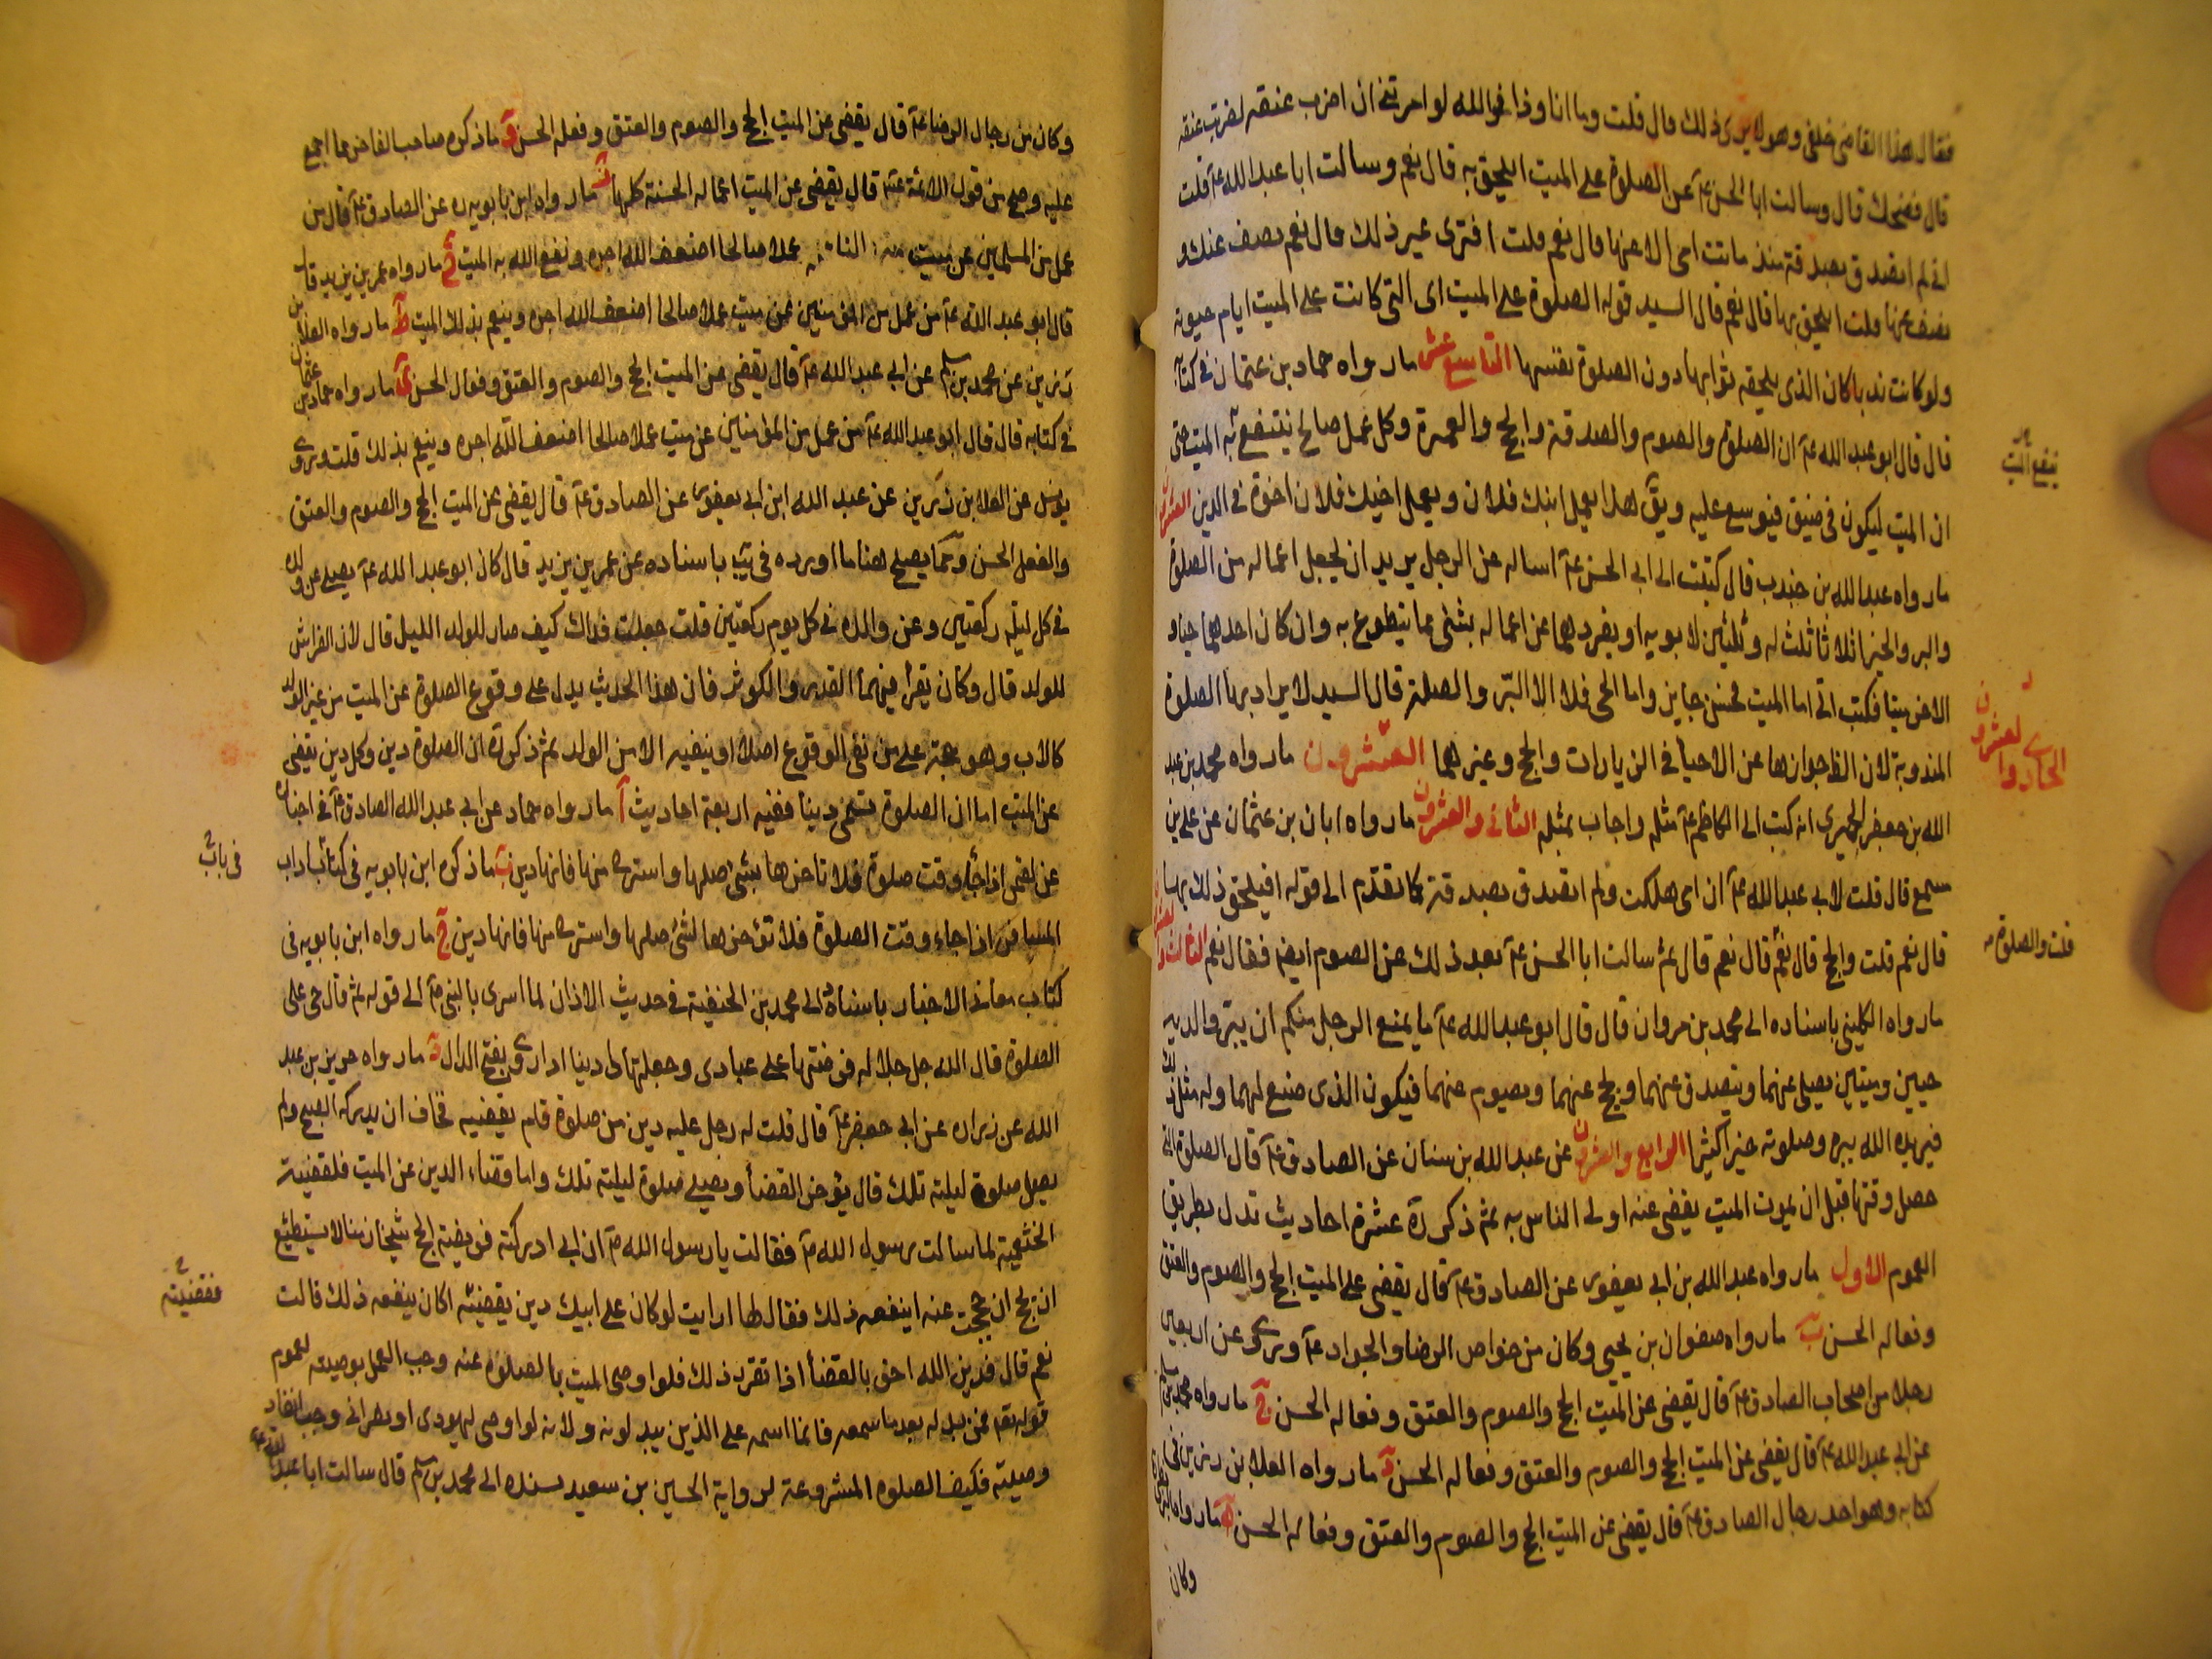 فقال هذا القاضى خلفى وهو لا يرى ذلك قال قلت وما انا وذا فوالله لو امرتنى ان اضرب عنقه لضربت عنقه
قال فضحك قال وسالت ابا الحسن عه عن الصلوة على الميت ايلحق به قال نعم وسالت ابا عبد الله عه قلت
انى لم اتصدق بصدقة منذ ماتت امى الا عنها قال نعم قلت افترى غير ذلك قال نعم نصف عنك و
نصف عنها قلت ايلحق بها قال نعم قال السيد قوله الصلوة على الميت اى التى كانت على الميت ايام حيوته
ولو كانت ندبا كان الذى يلحقه ثوابها دون الصلوة نفسها التاسع عشر ما رواه حماد بن عثمان فى كتابه
قال قال ابو عبد الله عه ان الصلوة والصوم والصدقة والحج والعمرة وكل عمل صالح ينتفع به الميت حتى
ينفع الميت
ان الميت ليكون فى ضيق فيوسع عليه ويق هذا بعمل ابنك فلان وبعمل اخيك فلان اخوة فى الدين العشرون
ما رواه عبد الله بن جندب قال كتبت الى ابى الحسن عه اساله عن الرجل يريد ان يجعل اعماله من الصلوة
والبر والخير اثلاثا ثلث له وثلثين لابويه او يفردهما عن اعماله بشئ مما يتطوع به وان كان احدهما حيا و
الاخر ميتا فكتب الى اما الميت فحسن جايز واما الحى فلا الا البر والصلة قال السيد لا يراد بها الصلوة
الحادى والعشرون
المندوبة لان الظ جوازها عن الاحيا فى الزيارات والحج وغيرهما العشرون ما رواه محمد بن عبد
الله بن جعفر الحميرى انه كتب الى الكاظم عه مثله واجاب بمثله الثانى والعشرون ما رواه ابان بن عثمان عن على بن
سمع قال قلت لابى عبد الله عه ان امى هلكت ولم اتصدق بصدقة كما تقدم الى قوله افيلحق ذلك بها
قال نعم قلت والحج قال نعم قال نعم قال ثم سالت ابا الحسن عه بعد ذلك عن الصوم ايض فقال نعم الثالث والعشرون
قلت والصلوة
ما رواه الكلينى باسناده الى محمد بن مروان قال قال ابو عبد الله عه ما يمنع الرجل منكم ان يبر والديه
حيين وميتين يصلى عنهما ويتصدق عنهما ويحج عنهما ويصوم عنهما فيكون الذى صنع لهما وله مثل ذلك
فيزيده الله ببره وصلوته خيرا كثيرا الرابع والعشرون عن عبد الله بن سنان عن الصادق عه قال الصلوة التى
حصل وقتها قبل ان يموت الميت يقضى عنه اولى الناس به ثم ذكر ره عشرة احاديث تدل بطريق
العموم الاول ما رواه عبد الله بن ابى يعفور عن الصادق عه قال يقضى على الميت الحج والصوم والعتق
وفعاله الحسن ب ما رواه صفوان بن يحيى وكان من خواص الرضا والجواد عه وروى عن اربعين
رجلا من اصحاب الصادق عه قال يقضى عن الميت الحج والصوم والعتق وفعاله الحسن ج ما رواه محمد بن مسلم
عن ابى عبد الله عه قال يقضى عن الميت الحج والصوم والعتق وفعاله الحسن د ما رواه العلا بن رزين فى
كتابه وهو احد رجال الصادق عه قال يقضى عن الميت الحج والصوم والعتق وفعاله الحسن ه ما رواه البزنطى
وكان
وكان من رجال الرضا عه قال يقضى عن الميت الحج والصوم والعتق وفعله الحسن و ما ذكره صاحب الفاخر مما اجمع
عليه وصح من قول الائمة عه قال يقضى عن الميت اعماله الحسنة كلها ز ما رواه ابن بابويه ره عن الصادق عه قال من
عمل من المسلمين عن ميت عملا صالحا اضعف الله اجره ونفع الله به الميت ح ما رواه عمر بن يزيد قال
قال ابو عبد الله عه من عمل من المؤمنين عن ميت عملا صالحا اضعف الله اجره وينعم بذلك الميت ط ما رواه العلا بن
رزين عن محمد بن مسلم عن ابى عبد الله عه قال يقضى عن الميت الحج والصوم والعتق وفعال الحسن ى ما رواه حماد بن عثمان
فى كتابه قال قال ابو عبد الله عه من عمل من المؤمنين عن ميت عملا صالحا اضعف الله اجره وينعم بذلك قلت وروى
يونس عن العلا بن رزين عن عبد الله ابن ابى يعفور عن الصادق عه قال يقضى عن الميت الحج والصوم والعتق
والفعل الحسن ومما يصلح هنا ما اورده فى يب باسناده عن عمر بن يزيد قال كان ابو عبد الله عه يصلى عن ولده
فى كل ليلة ركعتين وعن والده فى كل يوم ركعتين قلت جعلت فداك كيف صار للولد الليل قال لان الفراش
للولد قال وكان يقرأ فيهما القدر والكوثر فان هذا الحديث يدل على وقوع الصلوة عن الميت من غير الولد
كالاب وهو حجة على من نفى الوقوع اصلا او ينفيه الا من الولد ثم ذكر ره ان الصلوة دين وكل دين يقضى
عن الميت اما ان الصلوة تسمى دينا ففيه اربعة احاديث آ ما رواه حماد عن ابى عبد الله الصادق عه فى اخباره
عن لقمن اذا جأ وقت صلوة فلا تاخرها بشئ صلها واسترح منها فانها دين ب ما ذكره ابن بابويه فى كتاب اداب
فى باب
المسافر اذا جاء وقت الصلوة فلا تؤخرها لشئ صلها واسترح منها فانها دين ج ما رواه ابن بابويه فى
كتاب معانى الاخبار باسناده الى محمد بن الحنفية فى حديث الاذان لما اسرى بالنبى ص الى قوله ثم قال حى على
الصلوة قال الله جل جلاله فرضتها على عبادى وجعلتها لى دينا اذا روى بفتح الدال د ما رواه حريز بن عبد
الله عن زراره عن ابى جعفر عه قال قلت له رجل عليه دين من صلوة قام يقضيه فخاف ان يدركه الصبح ولم
يصل صلوة ليلته تلك قال يؤخر القضأ ويصلى صلوة ليلته تلك واما قضاء الدين عن الميت فلقضية
الخثعمية لما سالت رسول الله ص فقالت يا رسول الله ص ان ابى ادركته فريضة الحج شيخا زمنا لا يستطيع
ان يحج ان حججت عنه اينفعه ذلك فقال لها ارايت لو كان على ابيك دين يقضيته اكان ينفعه ذلك قالت
فقضيته
نعم قال فدين الله احق بالقضأ اذا تقرر ذلك فلو اوصى الميت بالصلوة عنه وجب العمل بوصيته لعموم
قوله تعم فمن بدله بعد ما سمعه فانما اثمه على الذين يبدلونه ولانه لو اوصى ليهودى او نصرانى وجب انفاذ
وصيته فكيف الصلوة المشروعة لرواية الحسين بن سعيد بسنده الى محمد بن مسلم قال سالت ابا عبد الله عه